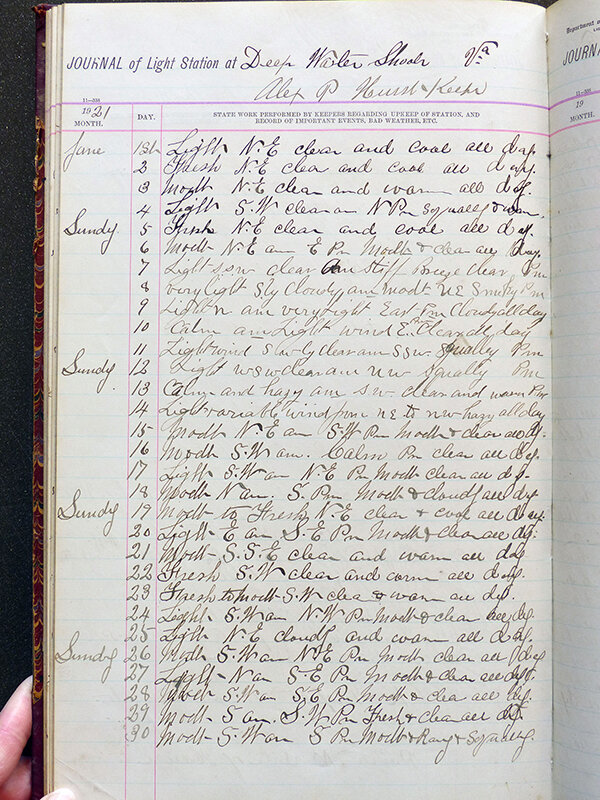 JOURNAL of Light Station at Deep Water Shoals Va
Alex P Hurst Keeper
11—308
1921
MONTH. DAY. STATE WORK PERFORMED BY KEEPERS REGARDING UPKEEP OF STATION, AND
RECORD OF IMPORTANT EVENTS, BAD WEATHER, ETC.
June 1st Light N.E clear and cool all day.
2 Fresh N.E clear and cool all day.
3 Modt N.E clear and warm all day.
4 Light S.W clear am N Pm Squally & warm
Sundy 5 Fresh N.E clear and cool all day.
6 Modt N.E am E Pm Modt & clear all day.
7 Light s sw clear am Stiff Breeze clear Pm
8 very light Sly Cloudy am modt NE Smoky Pm
9 Light n am very Light East Pm Cloudy all day
10 Calm am Light wind E. Clear all day
11 Light wind s wly clear am s sw Squally Pm
Sundy 12 Light wsw clear am nw Squally Pm
13 Calm and hazy am sw clear and warm Pm
14 Light variable wind from NE to nw hazy all day
15 Modt N.E am S.W Pm Modt & clear all dy.
16 Modt S.W am. Calm Pm clear all day.
17 Light S.W am N.E Pm Modt clear all dy.
18 Modt N am. S Pm Modt & cloudy all dy.
Sundy 19 Modt to Fresh N.E clear & cool all day.
20 Light E am S.E Pm Modt & clear all dy.
21 Modt S.S.E clear and warm all day
22 Fresh S.W clear and warm all day.
23 Fresh to modt S.W clear & warm all dy.
24 Light S.W am N.W Pm Modt & clear all dy.
25 Light N.E cloudy and warm all day.
Sundy 26 Modt S.W am N.E Pm Modt clear all day
27 Light N am S.E Pm Modt & clear all dy.
28 Modt S.W am S.E Pm Modt & clear all dy.
29 Modt S am. S.W Pm Fresh & clear all dy.
30 Modt S.W am S Pm Modt & Rany & Squally.
Department of
JOURNAL
19
MONTH.